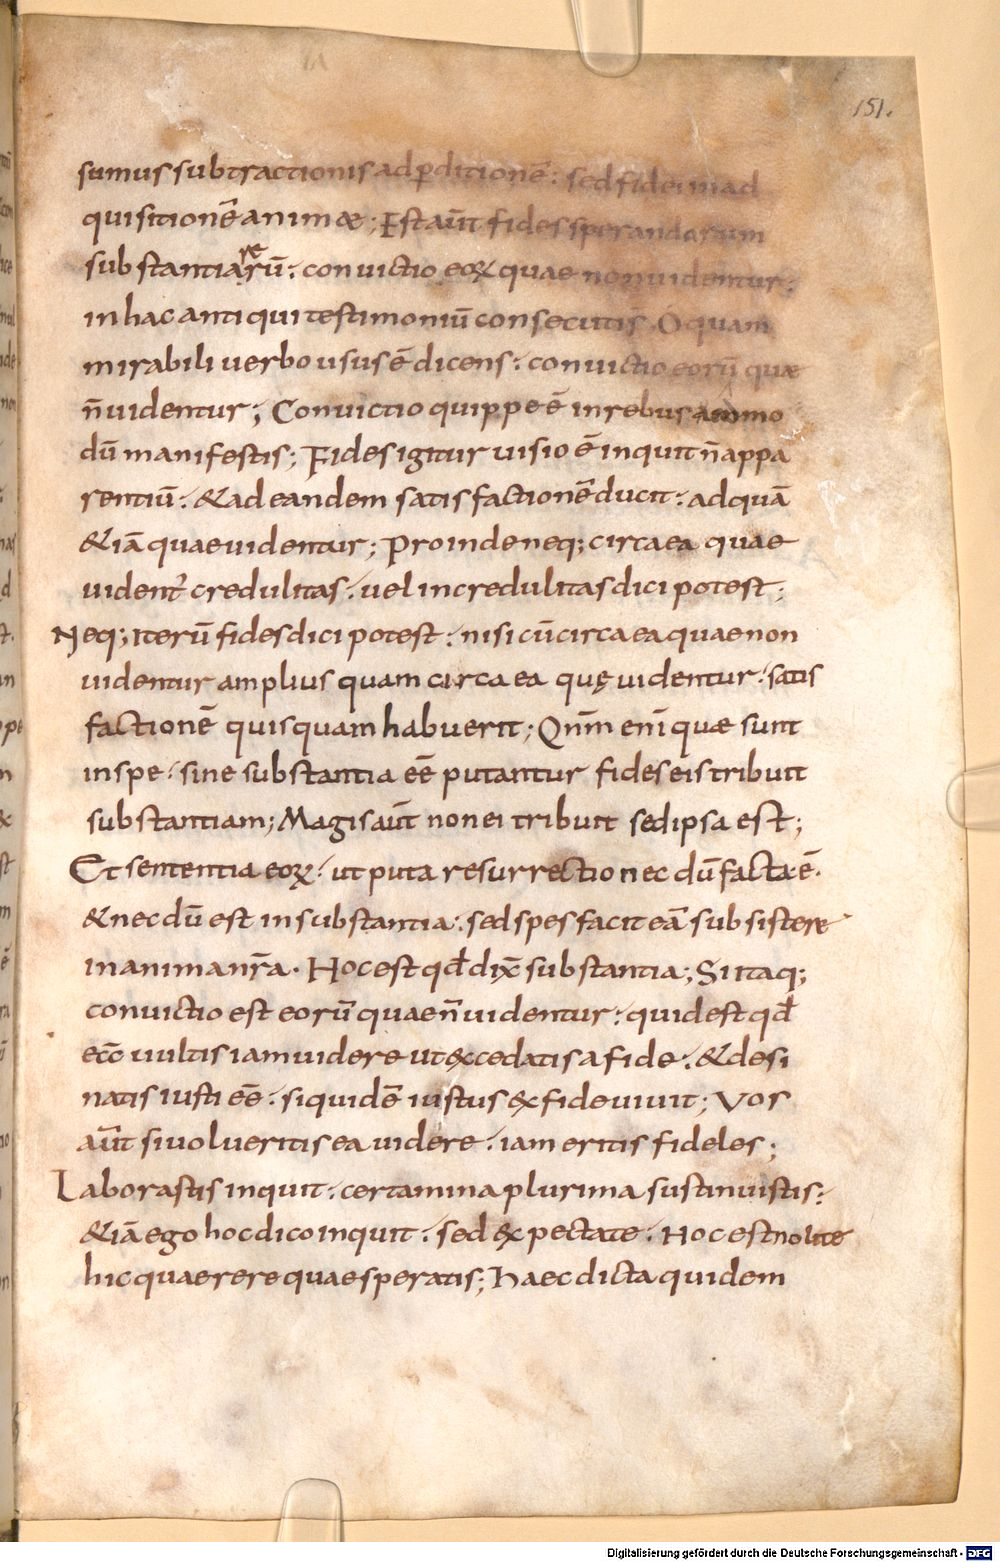 151.
sumus subtractionis ad ꝑditionē: sed fidei in ad
quisitionē animæ; Est aūt fides sperandarum
substantia rerū: convictio eoꝝ quae non videntur:
in hac antiqui testimoniū consecuti s̄ O quam
mirabili verbo usus ē dicens: convictio eorū quæ
n̄ videntur; Convictio quippe ē in rebus ammo
dū manifestis; Fides igitur visio ē inquit n̄ appa
rentiū: & ad eandem satisfactionē ducit: ad quā
&iā quae videntur; Proinde neq; circa ea quae
vident᷒ credulitas: vel incredulitas dici potest;
Neq; iterū fides dici potest: nisi cū circa ea quae non
videntur amplius quam circa ea quę videntur: satis
factionē quisquam habuerit; Qn̄m enī quæ sunt
in spe: sine substantia eē putantur fides eis tribuit
substantiam; Magis aūt non ei tribuit sed ipsa est;
Et sententia eoꝝ: ut puta resurrectio nec dū facta ē.
& nec dū est in substantia: sed spes facit eā subsistere
in anima nr̄a. Hoc est qđ dix̄ substantia; Si itaq;
convictio est eorū quae n̄ videntur: quid est qđ
eccͦ vultis iam videre ut excedatis a fide: & desi
natis iusti eē: siquidē iustus ex fide vivit; Vos
aūt si volveritis ea videre: iam eritis fideles;
Laborastis inquit: certamina plurima sustinuistis:
&iā ego hoc dico inquit: sed expectate: Hoc est nolite
hic quaerere quae speratis; Haec dicta quidem
Digitalisierung gefördert durch die Deutsche Forschungsgemeinschaft - DFG